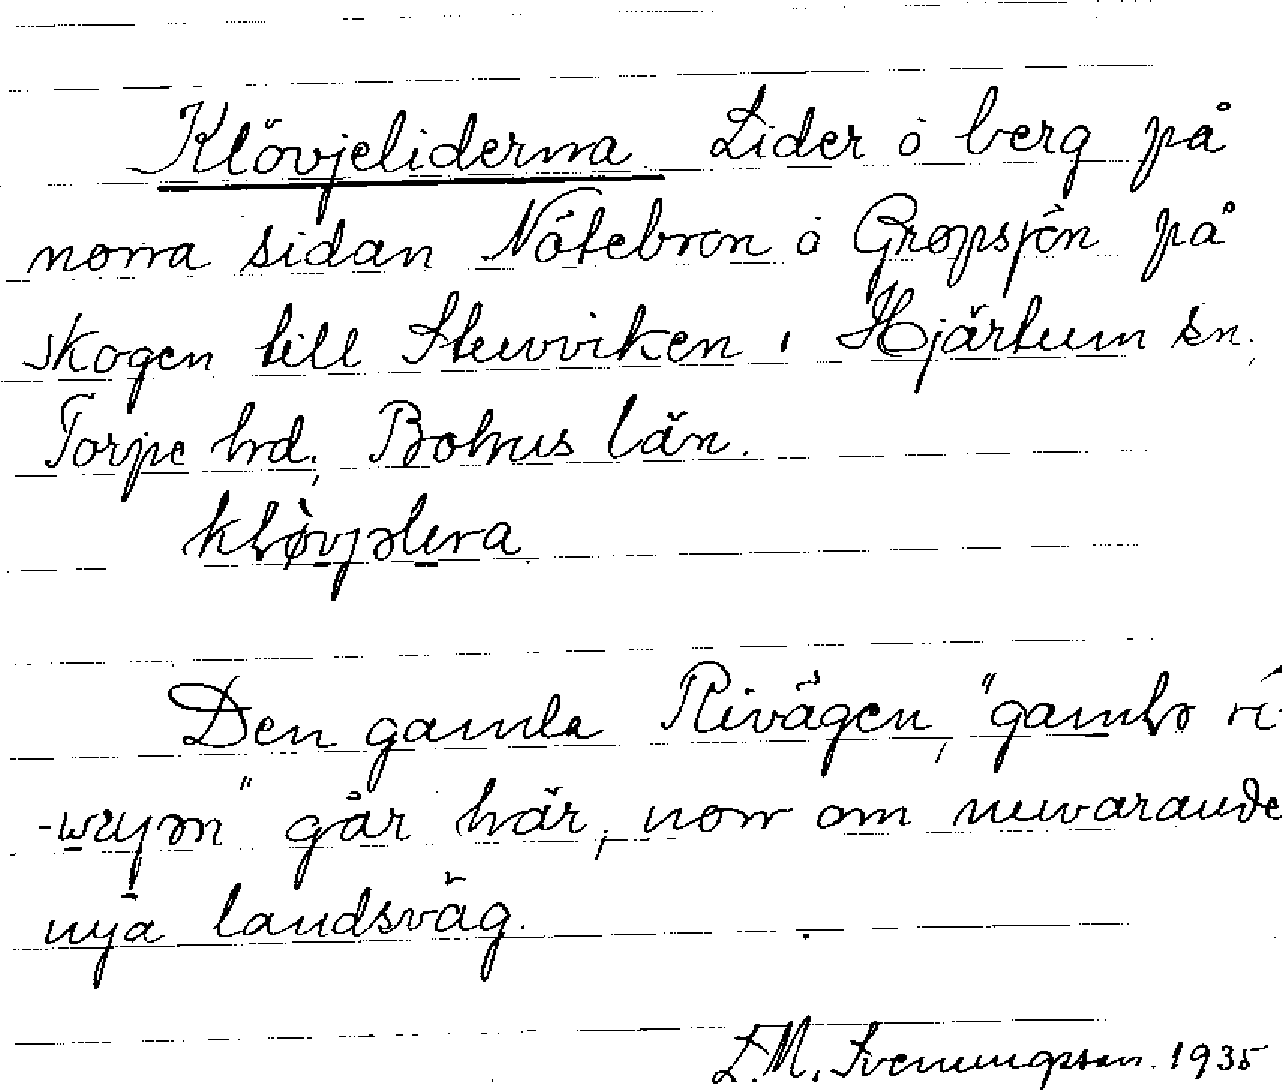 Klövjeliderna Lider å berg på
norra sidan Nötebron å Gropsjön på
skogen till Stewviken i Hjärtum sn.,
Torpe hd., Bohus län.
Den gamla Rivägen, "gamlə ri-
går här, norr om nuvarande
nya landsväg.
L.M. Svenungsson 1935